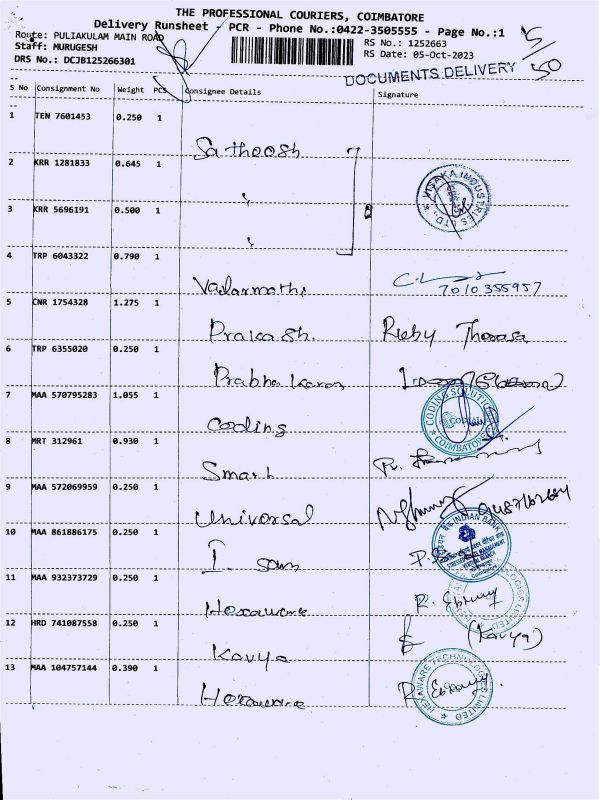 THE PROFESSIONAL COURIERS, COIMBATORE
Delivery Runsheet - PCR - Phone No.:0422-3505555 - Page No.:1
Route: PULIAKULAM MAIN ROAD
Staff: MURUGESH
RS No.: 1252663
DRS No.: DCJB125266301
RS Date: 05-Oct-2023
5/50
DOCUMENTS DELIVERY
S No Consignment No Weight PCS Consignee Details Signature
1 TEN 7601453 0.250 1 Satheesh
2 KRR 1281833 0.645 1 "
VISAKA INDUSTRIES LTD.
3 KRR 5696191 0.500 1 "
4 TRP 6043322 0.790 1 7010355957
5 CNR 1754328 1.275 1 Prakash.
6 TRP 6355020 0.250 1 Prabhakaran
7 MAA 570795283 1.055 1 Coding
CODING SOLUTIONS COIMBATORE
8 MRT 312961 0.930 1 Smart
9 MAA 572069959 0.250 1 Universal
10 MAA 861886175 0.250 1
INDIAN BANK
STRESSED ASSETS MANAGEMENT VERTICAL BRANCH
Coimbatore
11 MAA 932373729 0.250 1 Hexaware
12 HRD 741087558 0.250 1 Kavya (Kavya)
13 MAA 104757144 0.390 1 Hexaware
HEXAWARE TECHNOLOGIES LIMITED